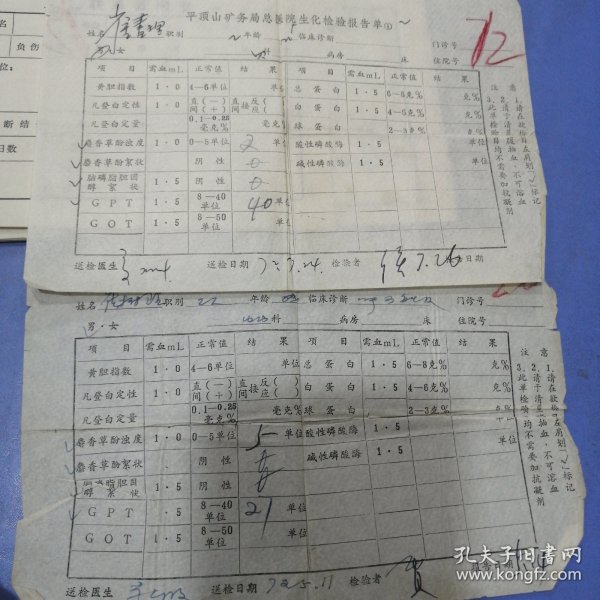 平顶山矿务局总医院生化检验报告单①
姓名 职别 年龄 临床诊断 门诊号
男 女 科 病房 床 住院号 72
项 目 需血mL 正常值 结 果 项 目 需血mL 正常值 结 果
黄胆指数 1·0 4—6单位 单位 总蛋白 1·5 6—8克% 克%
凡登白定性 1·0 直(—) 间(+) 直接反( 间 应( 白蛋白 1·5 4—6克% 克%
凡登白定量 0.1—0.25毫克% 毫克% 球蛋白 2—3克% 克%
麝香草酚浊度 1·0 0—5单位 2 单位 酸性磷酸酶 1·5 单位
麝香草酚絮状 阴 性 0 碱性磷酸酶 1·5
脑磷脂胆固醇絮状 1·5 阴 性 0
GPT 1·5 8—40单位 40 单位
GOT 1·5 8—50单位 单位
注意
1、请在欲检目左肩划“√”标记
2、请于清晨抽血，不可溶血
3、此单检验均不需要加抗凝剂
送检医生 送检日期 72.7.24 检验者 7.26 日期
姓名 职别 年龄 临床诊断 门诊号
男·女 科 病房 床 住院号
项 目 需血mL 正常值 结 果 项 目 需血mL 正常值 结 果
黄胆指数 1·0 4—6单位 单位 总蛋白 1·5 6—8克% 克%
凡登白定性 1·0 直(—) 间(+) 直接反( ) 间 应( ) 白蛋白 1·5 4—6克% 克%
凡登白定量 0.1—0.25毫克% 毫克% 球蛋白 2—3克% 克%
麝香草酚浊度 1·0 0—5单位 5 单位 酸性磷酸酶 1·5 单位
麝香草酚絮状 阴 性 碱性磷酸酶 1·5
脂胆固醇絮状 1·5 阴 性
GPT 1·5 8—40单位 21 单位
GOT 1·5 8—50单位 单位
注意
1、请在欲检目左肩划“√”标记
2、请于清晨抽血，不可溶血
3、此单检验均不需要加抗凝剂
送检医生 送检日期 72.5.11 检验者 贾
孔夫子旧书网
www.kongfz.com